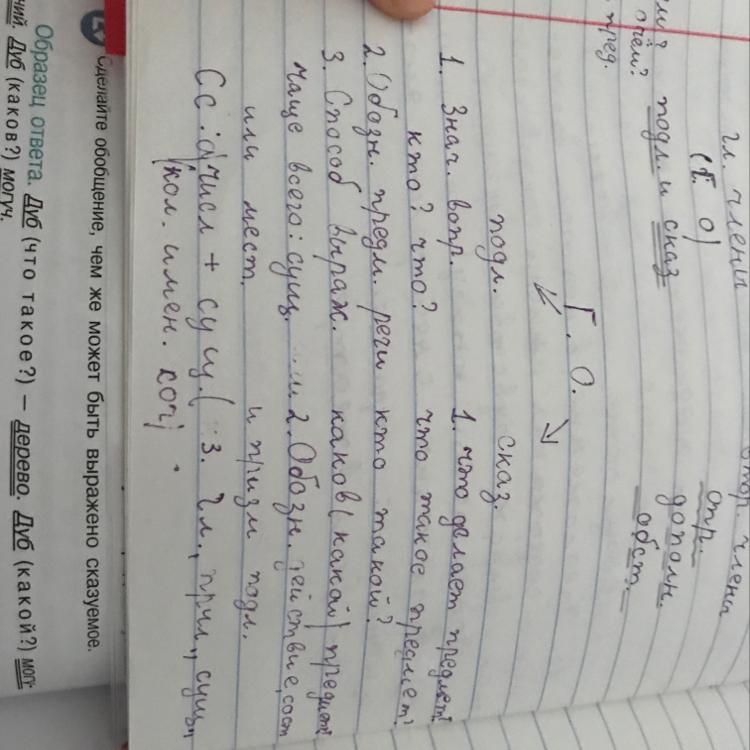 гл. члены втор. члены
(г. о) опр.
подл. и сказ дополн.
обст.
чём?
пред.
Г. О.
подл. сказ.
1. Знач. вопр. 1. что делает предмет?
кто? что? что такое предмет?
2. Обозн. предм. речи кто такой?
3. Способ выраж. каков (какой) предмет?
чаще всего: сущ. 2. Обозн. действие, сост
или мест. и призн подл.
Сс: числ + сущ. ( 3. Гл., прил., сущ.,
кол. имен.
Сделайте обобщение, чем же может быть выражено сказуемое.
Образец ответа. Дуб (что такое?) — дерево. Дуб (какой?) могу-
чий. Дуб (каков?) могуч.